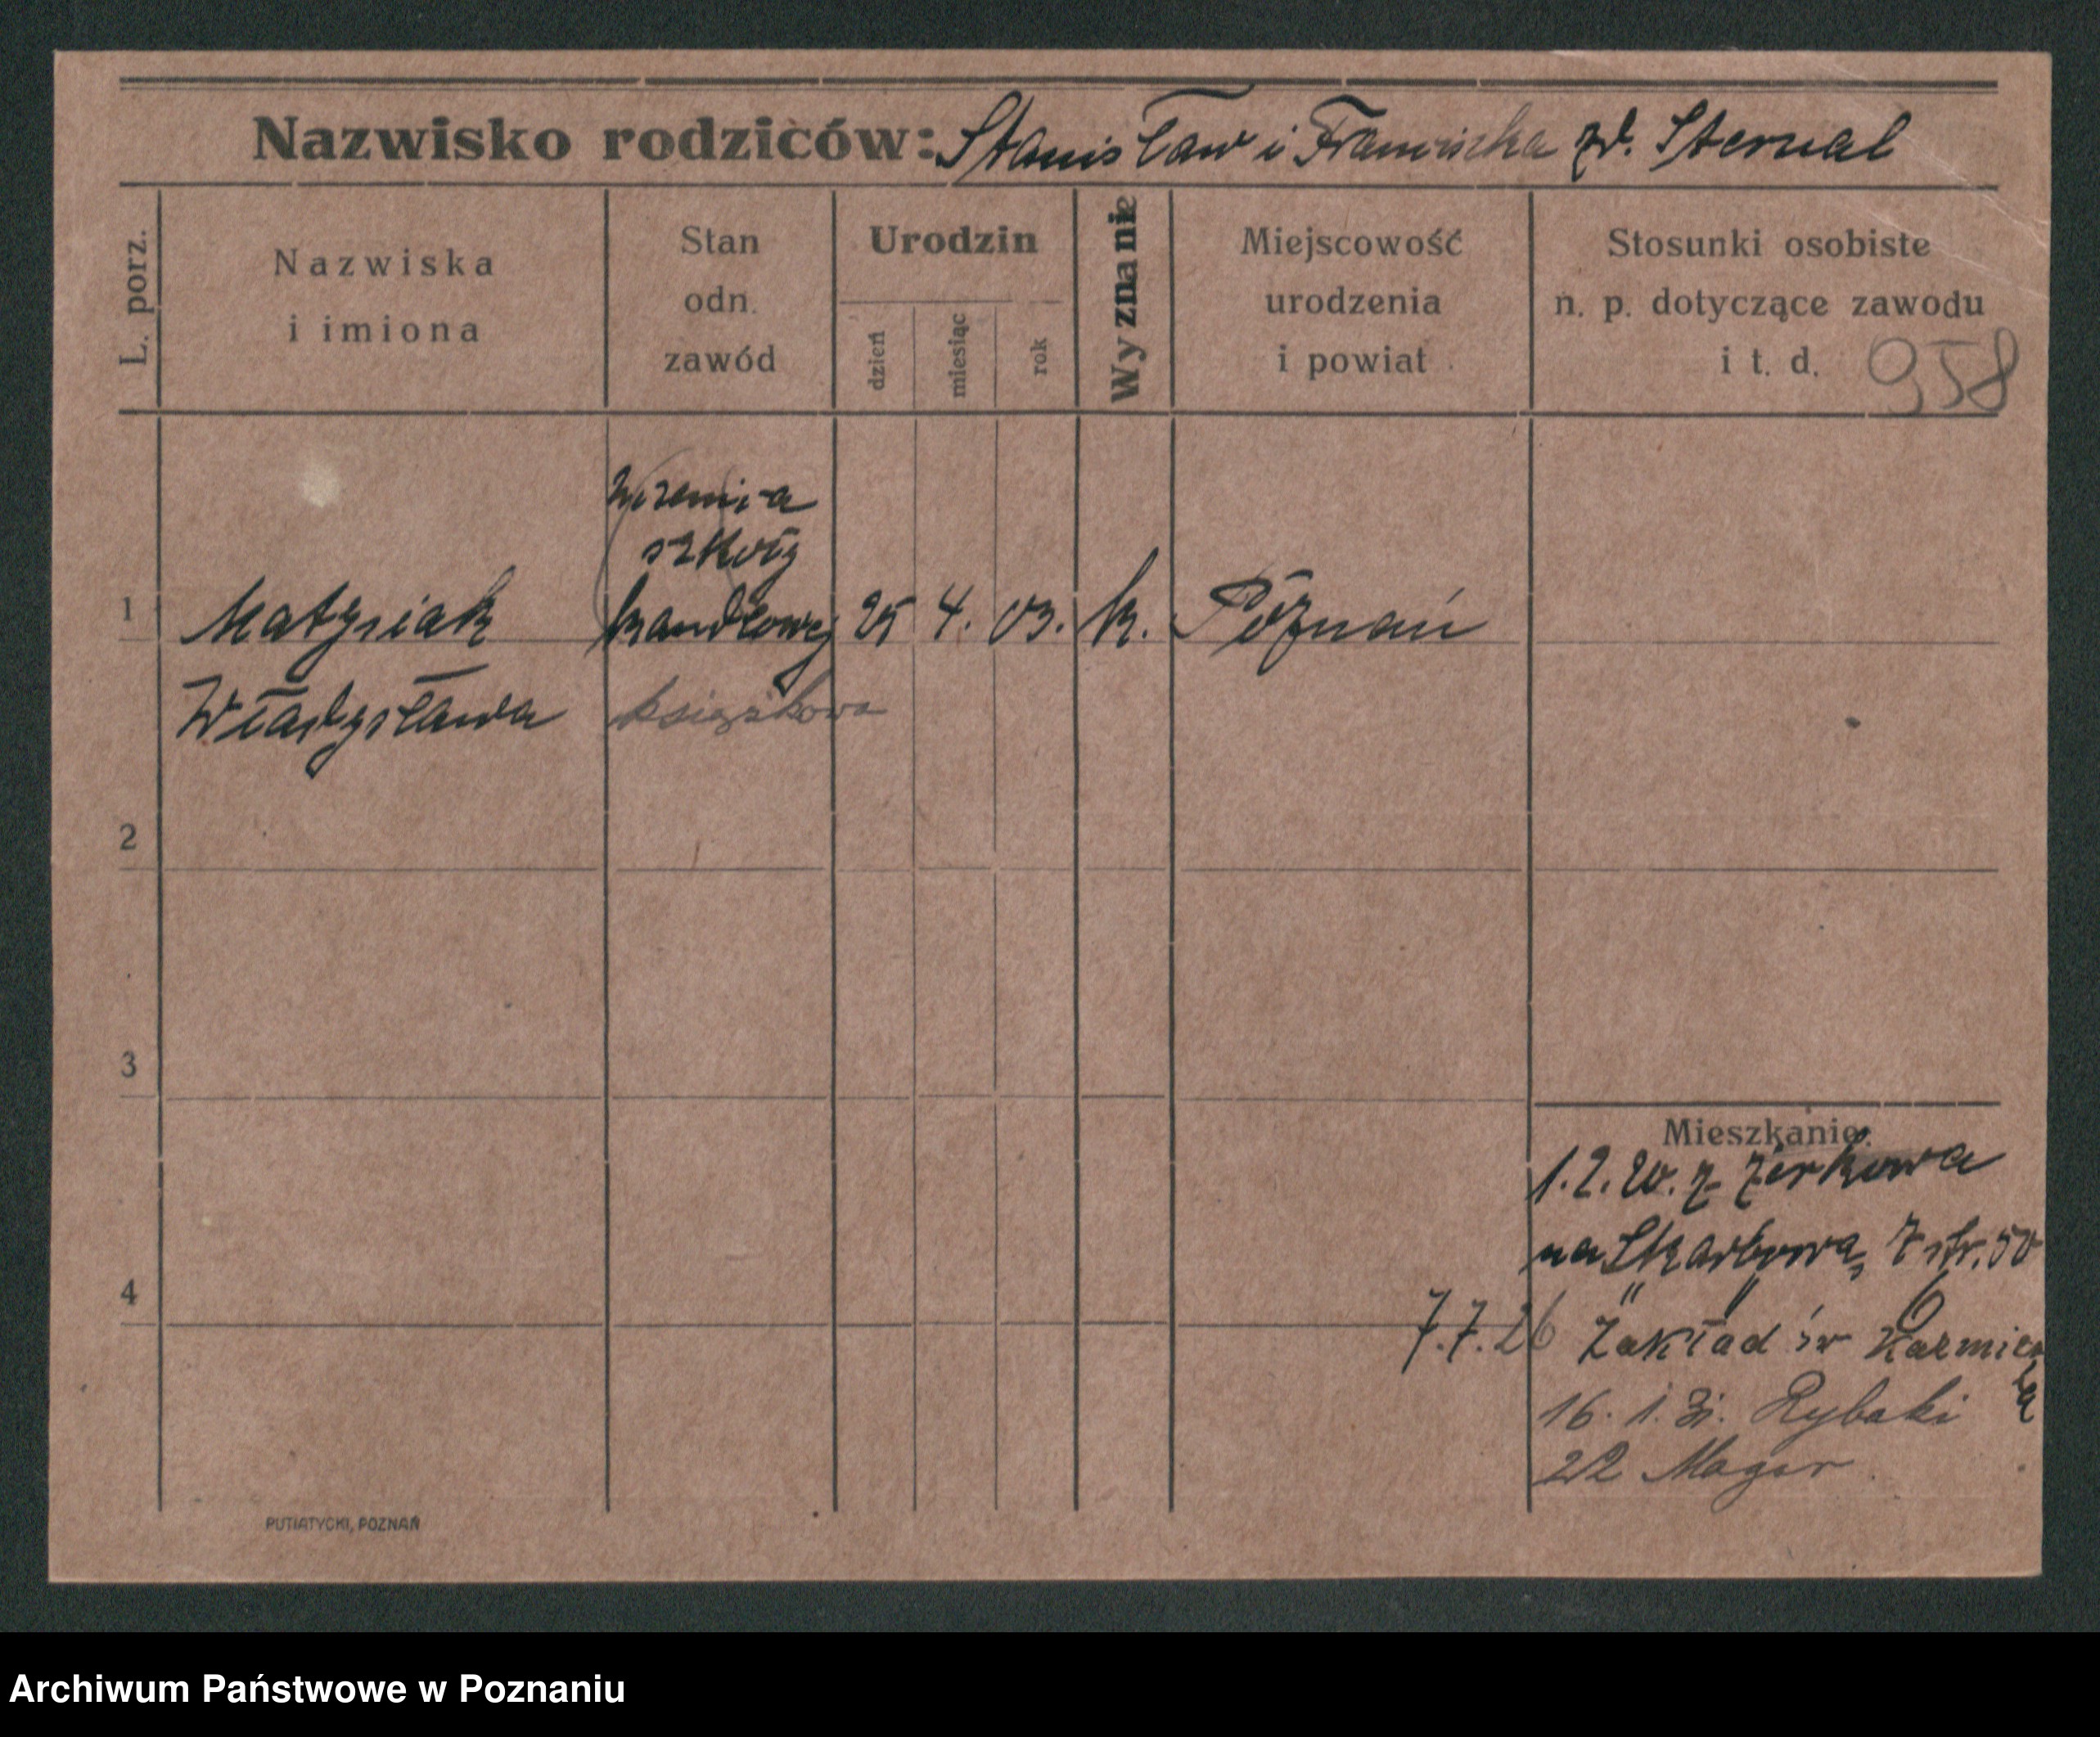 Nazwisko rodziców: Stanisław i Franciszka zd. Sternal
L. porz.
Nazwiska i imiona
Stan odn. zawód
Urodzin
dzień
miesiąc
rok
Wyznanie
Miejscowość urodzenia i powiat
Stosunki osobiste n. p. dotyczące zawodu i t. d.
958
uczennica
szkoły
1 Matysiak handlowej 25 4. 03. k. Poznań
Władysława książkowa
2
3
4
Mieszkanie.
1.2.20. z Żerkowa
na Skarbową 7 str. 50
" " 6
7.7.26 Zakład św Kazmierza
16. 1. 31. Rybaki
22 Magar
PUTIATYCKI, POZNAŃ
Archiwum Państwowe w Poznaniu